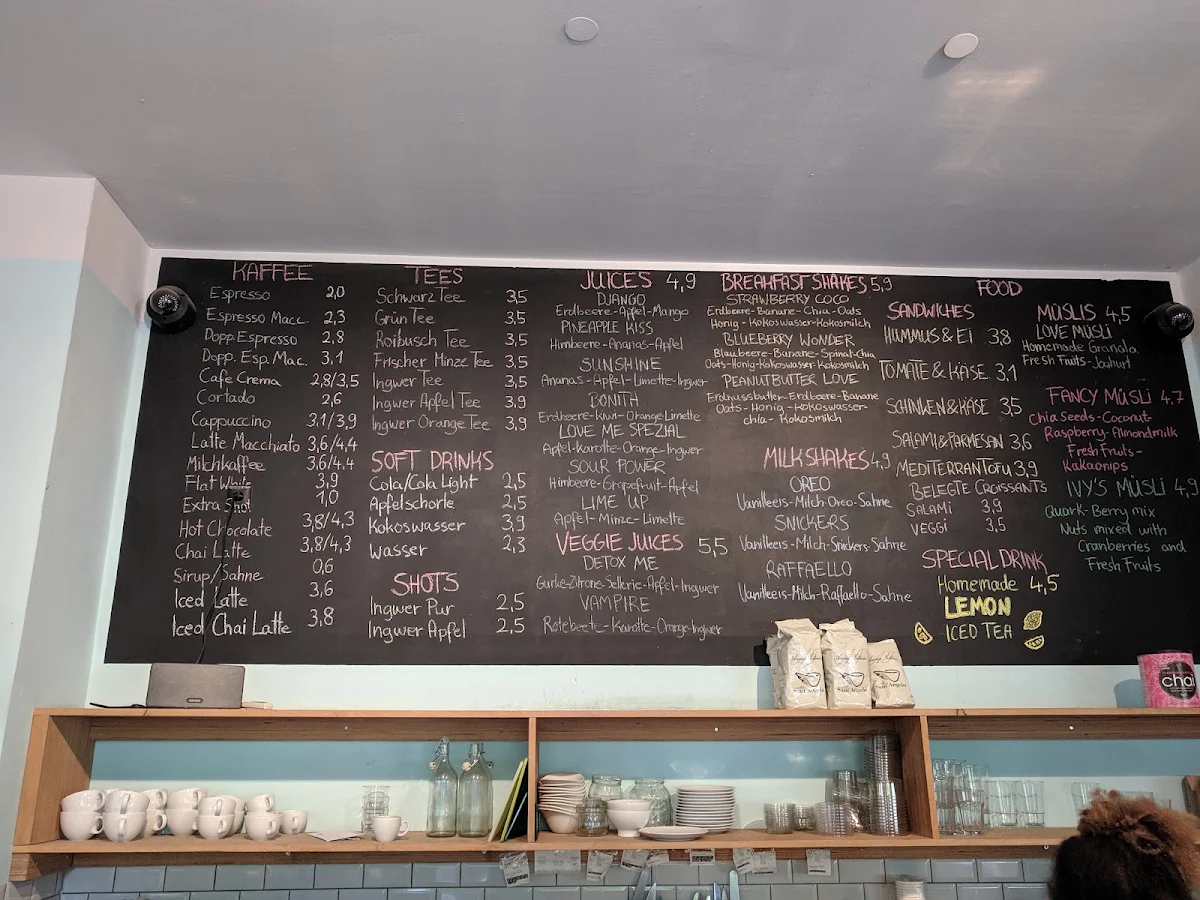 KAFFEE
Espresso 2,0
Espresso Macc. 2,3
Dopp. Espresso 2,8
Dopp. Esp. Mac. 3,1
Cafe Crema 2,8/3,5
Cortado 2,6
Cappuccino 3,1/3,9
Latte Macchiato 3,6/4,4
Milchkaffee 3,6/4,4
Flat White 3,9
Extra Shot 1,0
Hot Chocolate 3,8/4,3
Chai Latte 3,8/4,3
Sirup/Sahne 0,6
Iced Latte 3,6
Iced Chai Latte 3,8
TEES
Schwarz Tee 3,5
Grün Tee 3,5
Roibusch Tee 3,5
Frischer Minze Tee 3,5
Ingwer Tee 3,5
Ingwer Apfel Tee 3,9
Ingwer Orange Tee 3,9
SOFT DRINKS
Cola/Cola Light 2,5
Apfelschorle 2,5
Kokoswasser 3,9
Wasser 2,3
SHOTS
Ingwer Pur 2,5
Ingwer Apfel 2,5
JUICES 4,9
DJANGO
Erdbeere-Apfel-Mango
PINEAPPLE KISS
Himbeere-Ananas-Apfel
SUNSHINE
Ananas-Apfel-Limette-Ingwer
BONITH
Erdbeere-Kiwi-Orange-Limette
LOVE ME SPEZIAL
Apfel-Karotte-Orange-Ingwer
SOUR POWER
Himbeere-Grapefruit-Apfel
LIME UP
Apfel-Minze-Limette
VEGGIE JUICES 5,5
DETOX ME
Gurke-Zitrone-Sellerie-Apfel-Ingwer
VAMPIRE
Rotebeete-Karotte-Orange-Ingwer
BREAKFAST SHAKES 5,9
STRAWBERRY COCO
Erdbeere-Banane-Chia-Oats
Honig-Kokoswasser-Kokosmilch
BLUEBERRY WONDER
Blaubeere-Banane-Spinat-Chia
Oats-Honig-Kokoswasser-Kokosmilch
PEANUTBUTTER LOVE
Erdnussbutter-Erdbeere-Banane
Oats-Honig-Kokoswasser-
chia-Kokosmilch
MILKSHAKES 4,9
OREO
Vanilleeis-Milch-Oreo-Sahne
SNICKERS
Vanilleeis-Milch-Snickers-Sahne
RAFFAELLO
Vanilleeis-Milch-Raffaello-Sahne
FOOD
SANDWICHES
HUMMUS & Ei 3,8
TOMATE & KÄSE 3,1
SCHINKEN & KÄSE 3,5
SALAMI & PARMESAN 3,6
MEDITERRAN TOFU 3,9
BELEGTE CROISSANTS
SALAMI 3,9
VEGGI 3,5
SPECIAL DRINK
Homemade 4,5
LEMON
ICED TEA
MÜSLIS 4,5
LOVE MÜSLI
Homemade Granola
Fresh Fruits-Joghurt
FANCY MÜSLI 4,7
Chia Seeds-Coconut-
Raspberry-Almondmilk
Fresh Fruits-
Kakaonips
IVY'S MÜSLI 4,9
Quark-Berry mix
Nuts mixed with
Cranberries and
Fresh Fruits
chai